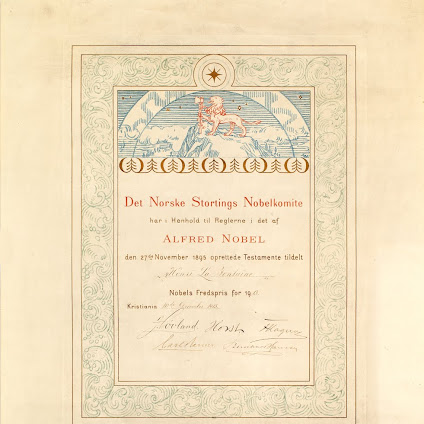 Det Norske Stortings Nobelkomite
har i Henhold til Reglerne i det af
ALFRED NOBEL
den 27de November 1895 oprettede Testamente tildelt
Henri La Fontaine
Nobels Fredspris for 19
Kristiania
Løvland Horst Hagerup